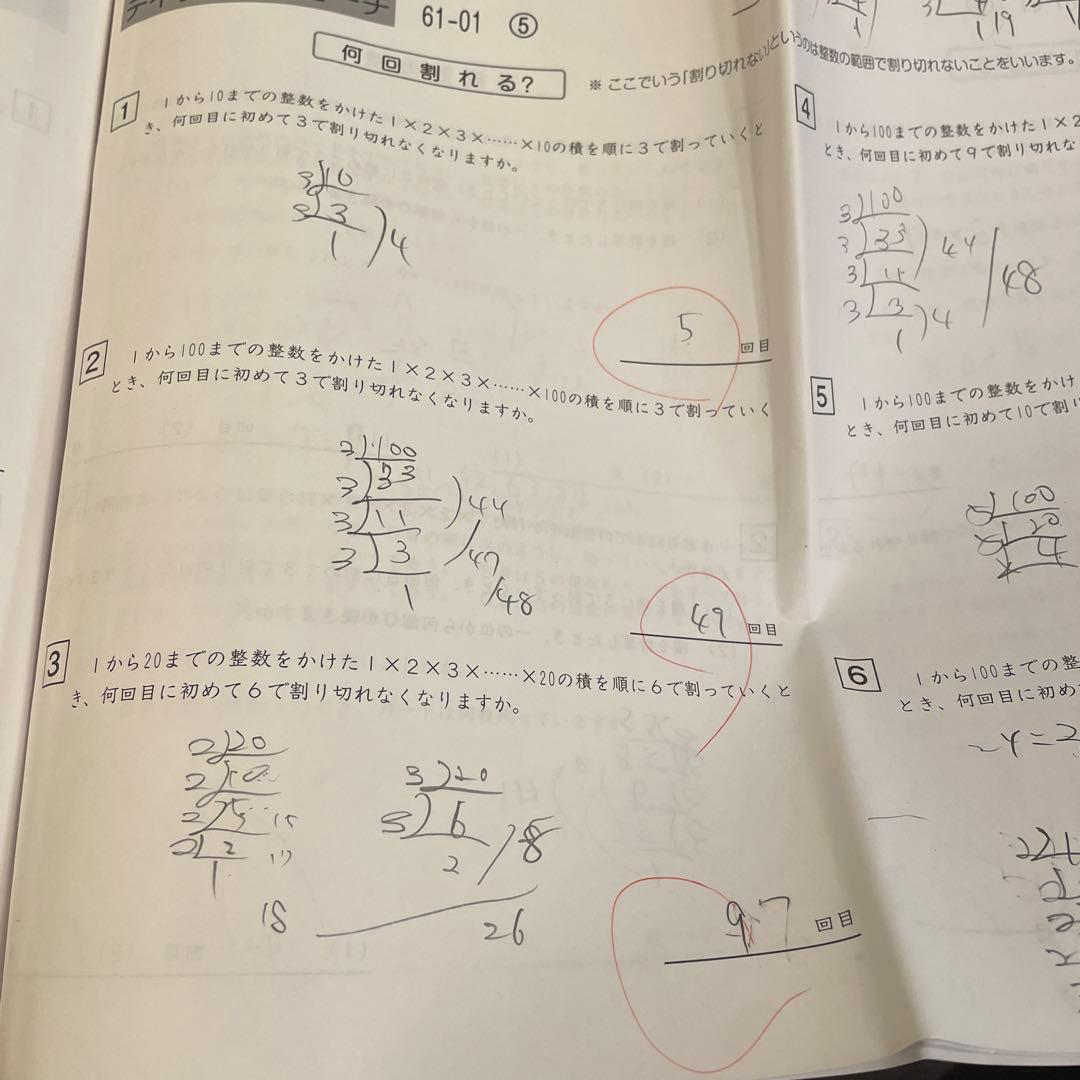 61-01 ⑤
何回割れる?
※ ここでいう「割り切れない」というのは整数の範囲で割り切れないことをいいます。
1 1から10までの整数をかけた1×2×3×……×10の積を順に3で割っていくと
き、何回目に初めて3で割り切れなくなりますか。
3)10
3)3
1 )4
5 回目
2 1から100までの整数をかけた1×2×3×……×100の積を順に3で割っていく
とき、何回目に初めて3で割り切れなくなりますか。
3)100
3)33
3)11 )44
3)3 /47
1 /48
49 回目
3 1から20までの整数をかけた1×2×3×……×20の積を順に6で割っていくと
き、何回目に初めて6で割り切れなくなりますか。
2)20
2)10
2)5 15
2)2 17
1
18
3)20
3)6
2 /8
26
9 回目
1 19
4 1から100までの整数をかけた1×2
とき、何回目に初めて9で割り切れな
3)100
3)33
3)11 )44
3)3
1 )4 /48
5 1から100までの整数をかけ
とき、何回目に初めて10で割り
5)100
5)20
4
6 1から100までの整
とき、何回目に初め
24=2